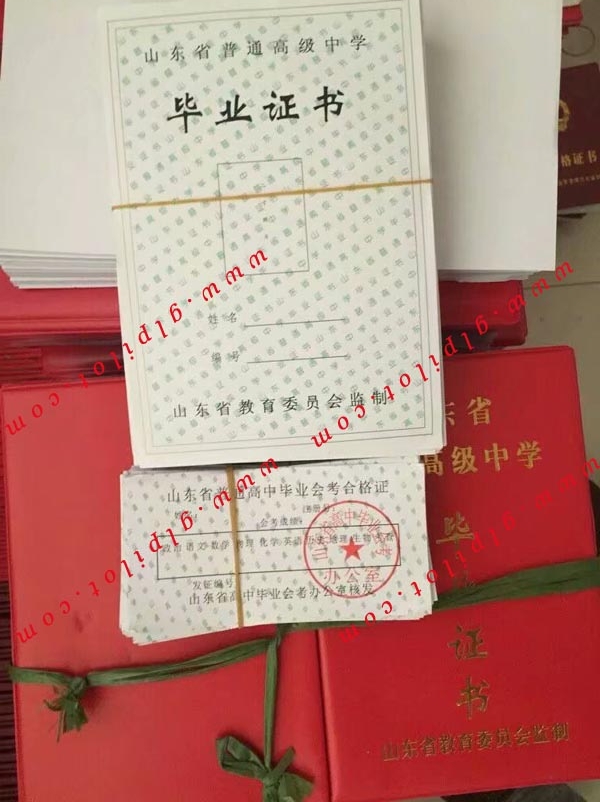 山东省普通高级中学
毕业证书
姓名
编号
山东省教育委员会监制
格证书
山东省普通高中毕业会考合格证
会考成绩
政治 语文 数学 物理 化学 英语 历史 地理 生物
办公室
发证编号
山东省高中毕业会考办公室核发
东省
高级中学
毕
证
书
山东省教育委员会监制
www.glpilot.com
www.glpilot.com
www.glpilot.com